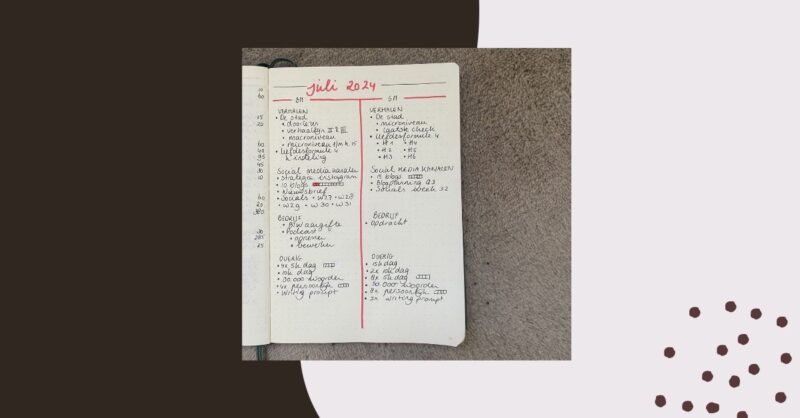 10
60
15
20
60
60
95
45
30
10
60
20
380
30
285
25
juli 2024
BM
SM
VERHALEN
• De stad
• doorlezen
• verhaallijn II & III
• macroniveau
• microniveau t/m h. 15
• Liefdesformule 4
h. indeling
Social media kanalen
• strategie instagram
• 10 blogs
• Nieuwsbrief
• Socials • W27 • W28
• W29 • W30 • W31
BEDRIJF
• BTW aangifte
• Podcast
• opnemen
• bewerken
OVERIG
• 4x 5k dag
• 10k dag
• 30.000 woorden
• 4x persoonlijk
• Writing prompt
VERHALEN
• De stad
• microniveau
• laatste check
• Liefdesformule 4
• H1 • H4
• H2 • H5
• H3 • H6
SOCIAL MEDIA KANALEN
• 15 blogs
• Blogplanning Q3
• Socials week 32
BEDRIJF
• Opdracht
OVERIG
• 15k dag
• 2x 10k dag
• 8x 5k dag
• 50.000 woorden
• 8x persoonlijk
• 2x writing prompt